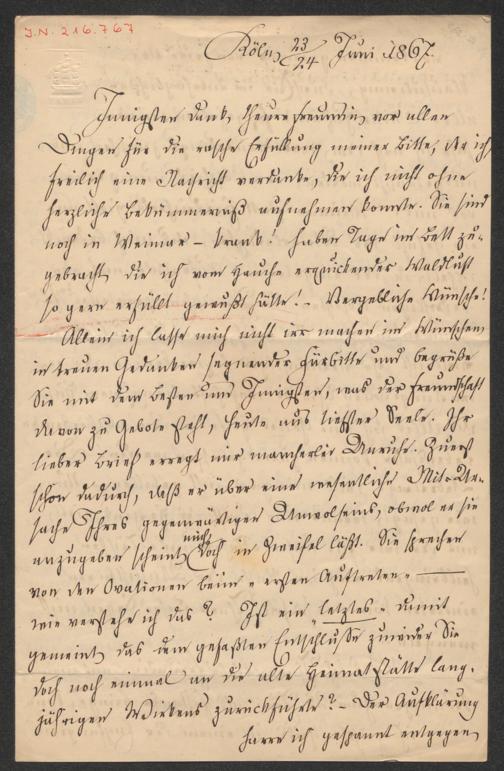 J.N. 216.767
Köln, 23/24 Juni 1867.
Innigsten Dank, theure Freundin, vor allen
Dingen für die rasche Erfüllung meiner Bitte, der ich
freilich eine Nachricht verdanke, die ich nicht ohne
herzliche Bekümmerniß aufnehmen konnte. Sie sind
noch in Weimar – krank! haben Tage im Bett zu-
gebracht, die ich vom Hauche erquickender Waldluft
so gern erfüllt gewußt hätte! – Vergebliche Wünsche!
Allein ich lasse mich nicht irr machen im Wünschen
in treuen Gedanken segnender Fürbitte und begrüße
Sie mit dem Besten und Innigsten, was der Freundschaft
davon zu Gebote steht, heute aus tiefster Seele. Ihr
lieber Brief erregt mir mancherlei Unruhe. Zuerst
schon dadurch, daß er über eine wesentliche Mit-Ur-
sache Ihres gegenwärtigen Unwolseins, obwol er sie
anzugeben scheint, mich doch in Zweifel läßt. Sie sprechen
von den Ovationen beim „ersten Auftreten“ —
wie verstehe ich das? Ist ein „letztes“ damit
gemeint, das dem gefaßten Entschlusse zuwider Sie
doch noch einmal an die alte Heimatstätte lang-
jährigen Wirkens zurückführte? – Der Aufklärung
harre ich gespannt entgegen